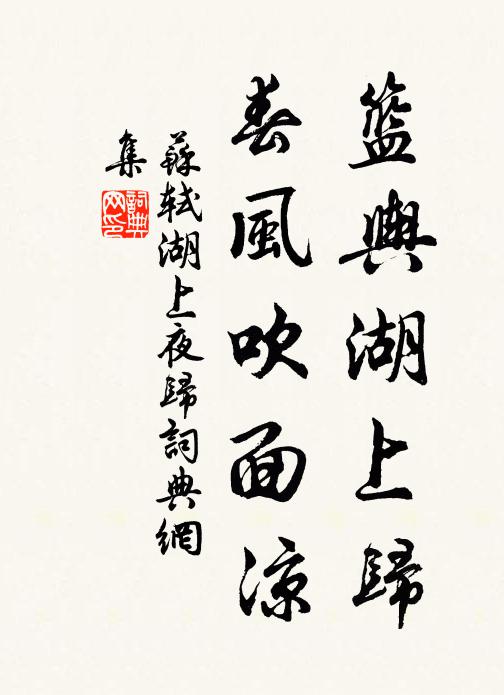 籃輿湖上歸
春風吹面涼
蘇軾湖上夜歸詞典網
集
詞典网印